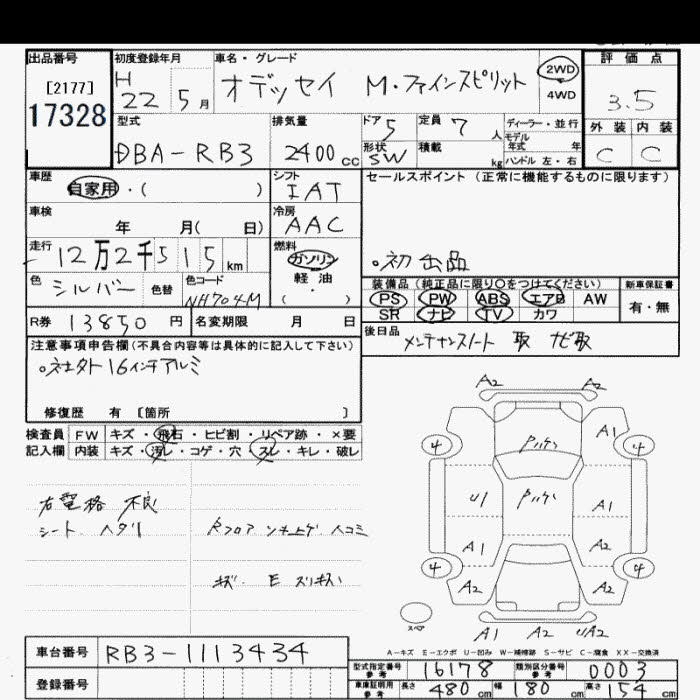 出品番号
[2177]
17328
初度登録年月
H 22 5月
車名・グレード
オデッセイ M・ファインスピリット
2WD
4WD
評価点
3.5
外装 内装
C C
型式
DBA-RB3
排気量
2400cc
ドア 5
形状 SW
定員 7人
積載 kg
ディーラー・並行
モデル年式 年
ハンドル 左・右
車歴
自家用・( )
シフト
IAT
セールスポイント(正常に機能するものに限ります)
。初出品
車検
年 月( 日)
冷房
AAC
走行
12万2千515km
燃料
ガソリン
軽油
( )
色
シルバー
色替
色コード
NH704M
装備品(純正品に限り○をつけてください)
PS PW ABS エアB AW
SR ナビ TV カワ
新車保証書
有・無
R券 13850円
名変期限 月 日
後日品
メンテナンスノート 取 ナビ取
注意事項申告欄(不具合内容等は具体的に記入して下さい)
。社外16インチアルミ
修復歴 有 [箇所 ]
検査員 FW キズ・飛石・ヒビ割・リペア跡・×要
記入欄 内装 キズ・汚レ・コゲ・穴・スレ・キレ・破レ
不良
シート ヘタリ
フロア ヘコミ
キズ
A2 A2
4 A1 4
U1 A1
A1 A2
4 A2 A2 4
スペア
A1 A2 UA2
A-キズ E-エクボ U-凹み W-補修跡 S-サビ C-腐食 XX-交換済
車台番号 RB3-1113434
登録番号
型式指定番号 参考 16178
類別区分番号 参考 0003
車庫証明用 参考 長さ 480cm 幅 180cm 高さ 154cm